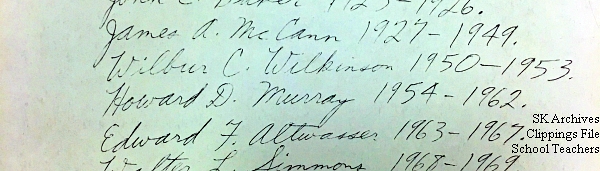 John C. Baker 1923-1926.
James A. McCann 1927-1949.
Wilbur C. Wilkinson 1950-1953.
Howard D. Murray 1954-1962.
Edward F. Altwasser 1963-1967.
Walter L. Simmons 1968-1969
SK Archives
Clippings File
School Teachers